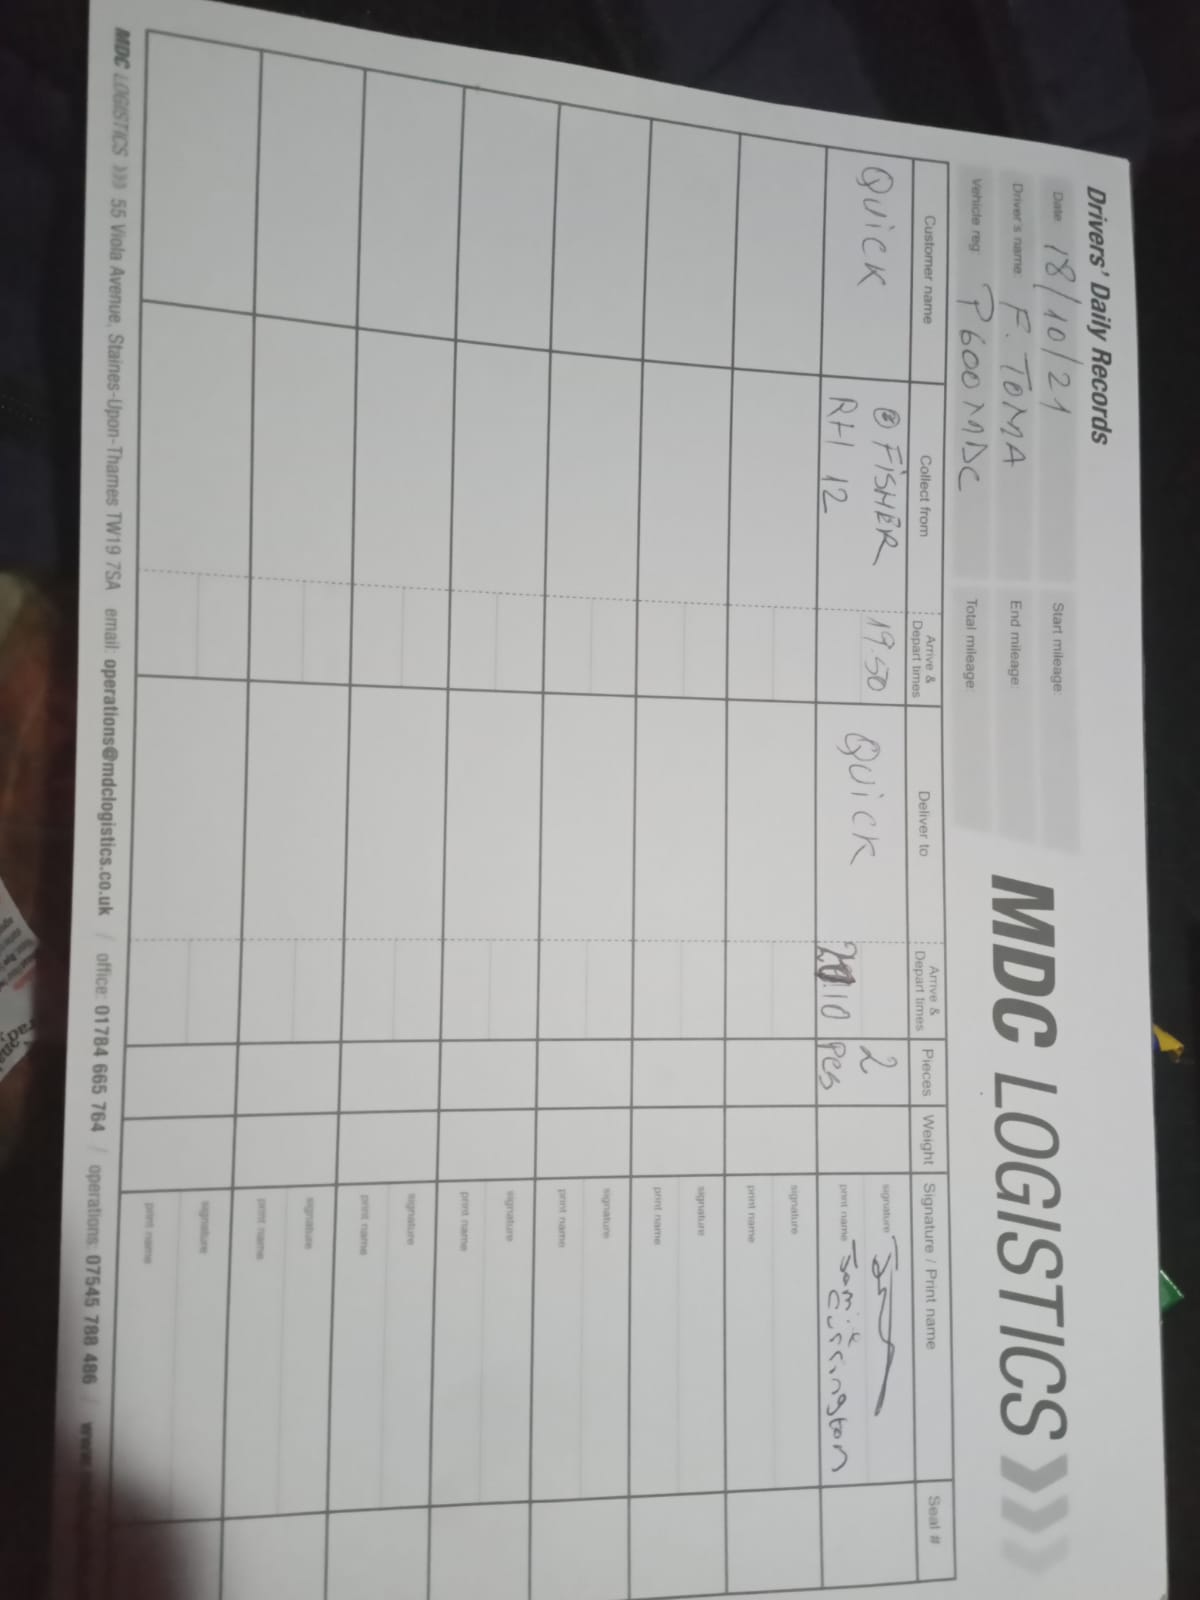 Drivers' Daily Records
MDC LOGISTICS
Date: 18/10/21
Start mileage:
Driver's name: F. TOMA
End mileage:
Vehicle reg: P600MDC
Total mileage:
Customer name
Collect from
Arrive & Depart times
Deliver to
Arrive & Depart times
Pieces
Weight
Signature / Print name
Seal #
QUICK
FISHER
RH 12
19.50
QUICK
.10
2
pcs
signature
print name Jamie
Currington
signature
print name
signature
print name
signature
print name
signature
print name
signature
print name
signature
print name
signature
print name
MDC LOGISTICS 55 Viola Avenue, Staines-Upon-Thames TW19 7SA email: operations@mdclogistics.co.uk / office: 01784 665 764 / operations: 07545 788 486 / www.